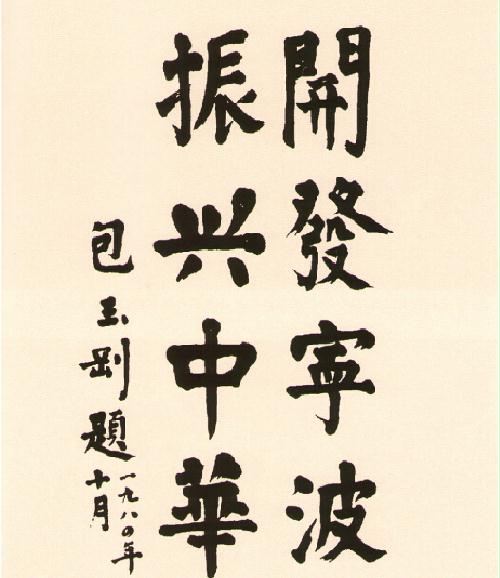 開發寧波
振兴中華
包玉剛題
一九八〇年
十月